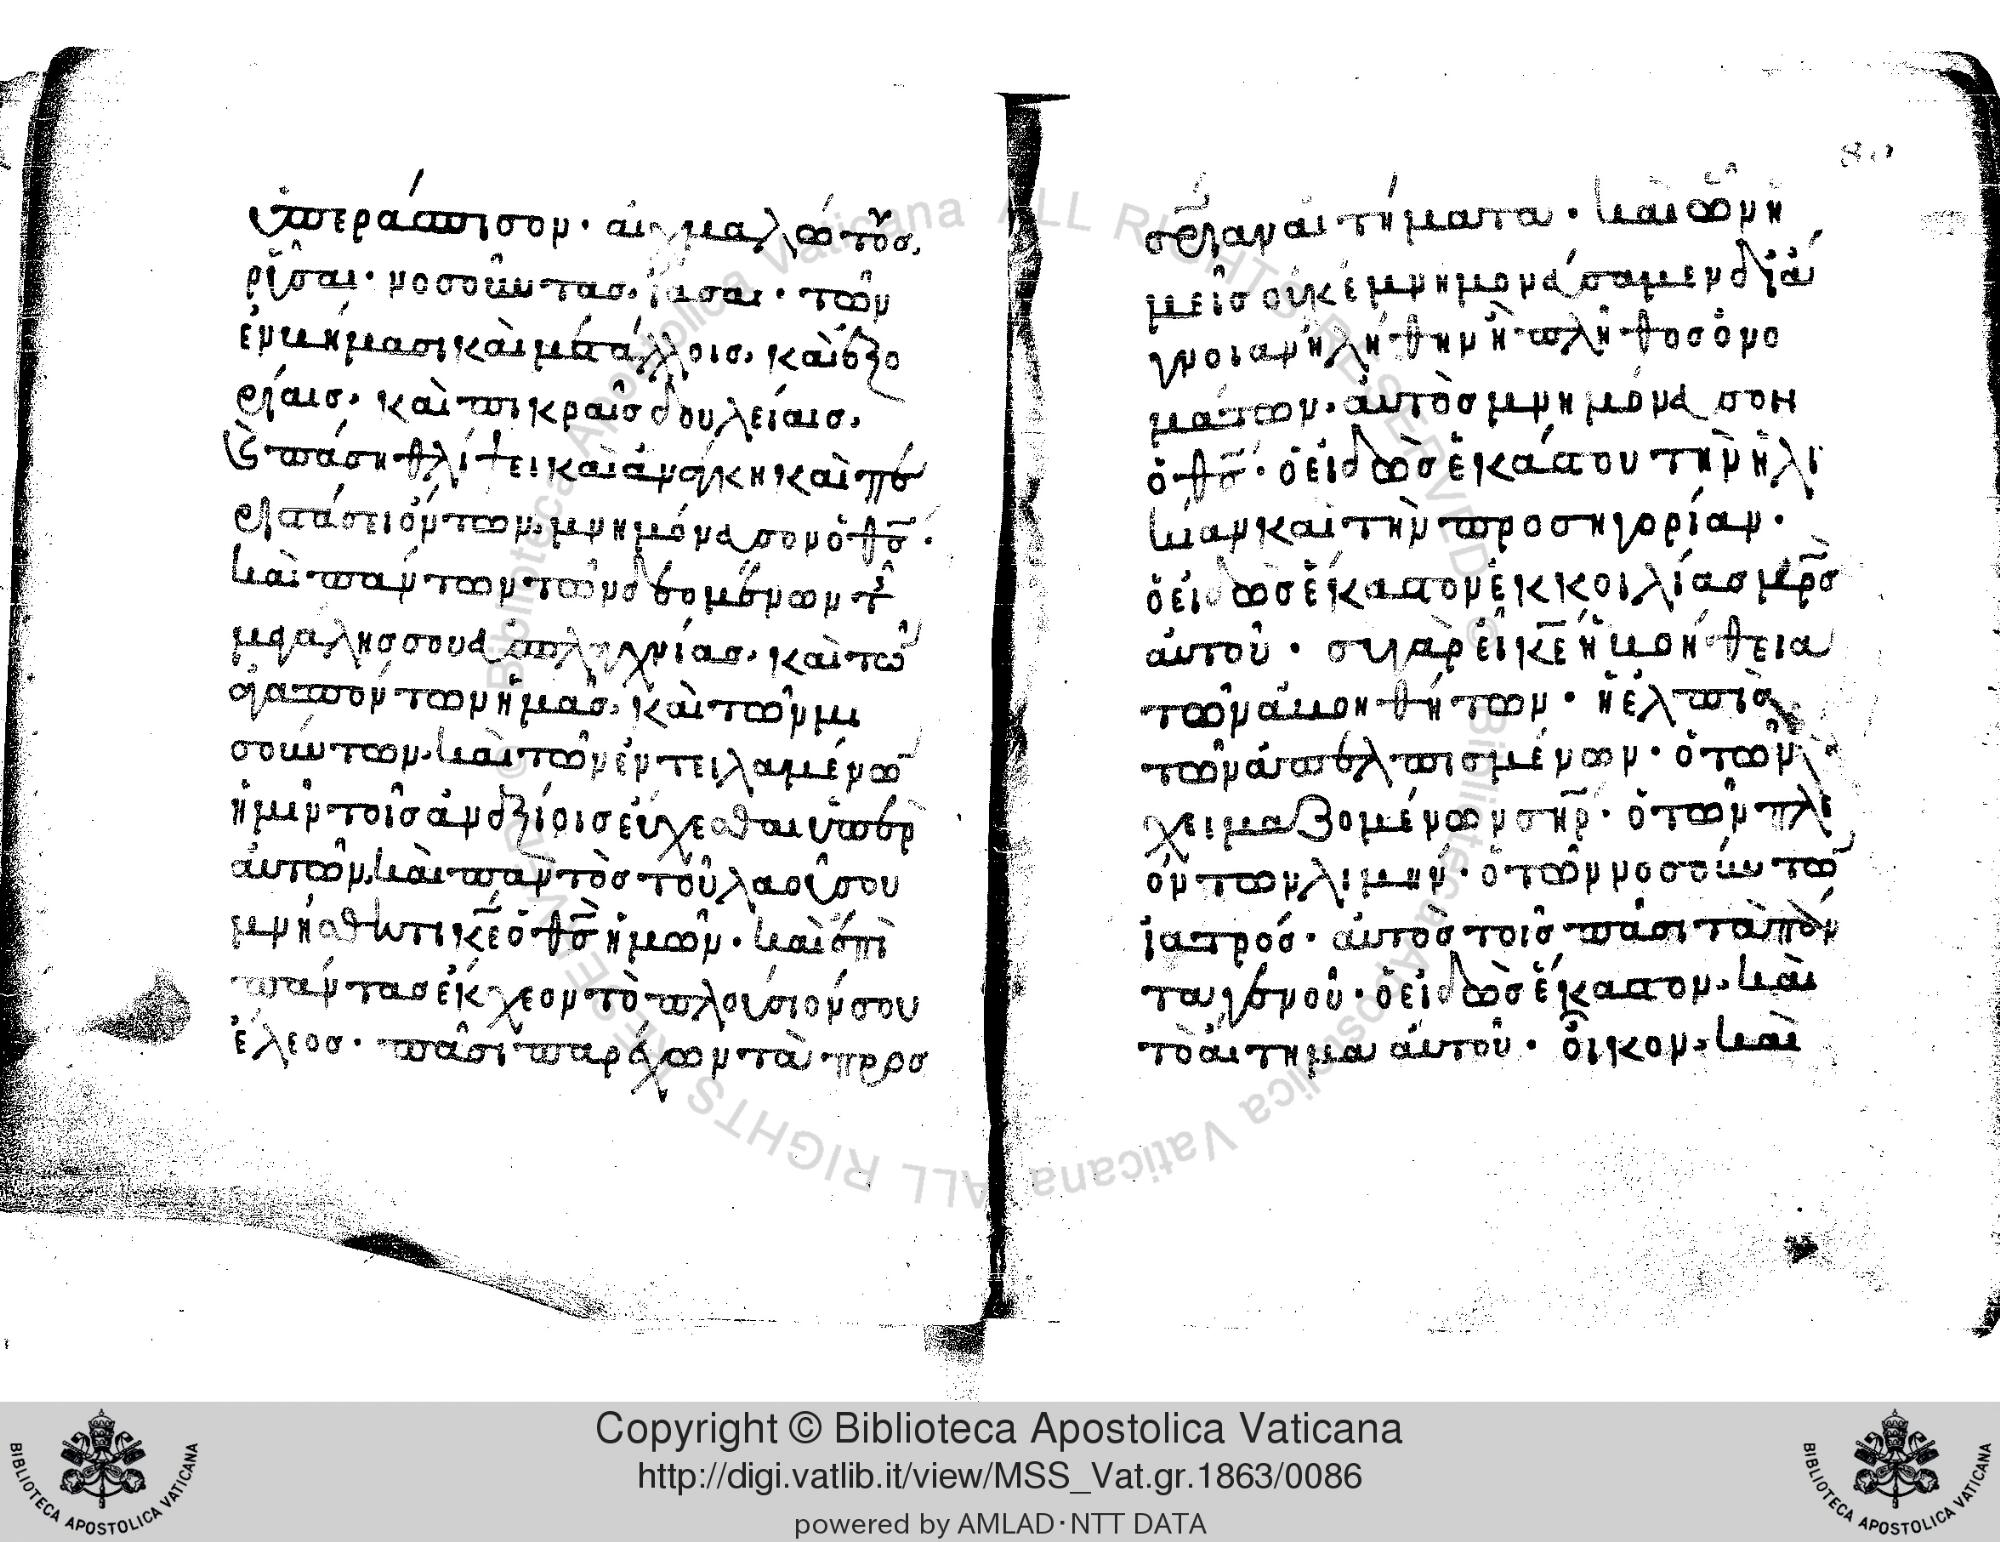 ὑπεράσπισον· αἰχμαλώτους
ρῦσαι· νοσοῦντας ἴασαι· τῶν
ἐν βήμασι καὶ μετάλλοις, καὶ ἐξο
ρίαις, καὶ πικραῖς δουλείαις,
καὶ πάση θλίψει καὶ ἀνάγκη καὶ πε
ριστάσει ὄντων, μνημόνευσον ὁ θς·
καὶ πάντων τῶν δεομένων τῆς
μεγάλης σου εὐσπλαγχνίας, καὶ τῶν
ἀγαπόντων ἡμᾶς, καὶ τῶν μι
σούντων, καὶ τῶν ἐντειλαμένων
ἡμῖν τοῖς ἀναξίοις εὔχεσθαι ὑπὲρ
αὐτῶν, καὶ παντὸς τοῦ λαοῦ σου
μνήσθητι κε ὁ θς ἡμῶν· καὶ ἐπὶ
πάντας ἔκχεον τὸ πλούσιόν σου
ἔλεος· πᾶσι παρέχων τὰ πρὸς
80
σριαν αἰτήματα· καὶ ὧν ἡ
μεῖς οὐκ ἐμνημονεύσαμεν δι' ἄ
γνοιαν ἢ λήθην ἢ πλῆθος ὀνο
μάτων· αὐτὸς μνημόνευσον
ὁ θς· ὁ εἰδὼς ἑκάστου τὴν ἡλι
κίαν καὶ τὴν προσηγορίαν·
ὁ εἰδὼς ἕκαστον ἐκ κοιλίας μρς
αὐτοῦ· σὺ γὰρ εἶ κε ἡ βοήθεια
τῶν ἀβοηθήτων· ἡ ἐλπὶς
τῶν ἀπελπισμένων· ὁ τῶν
χειμαζομένων σηρ· ὁ τῶν πλε
όντων λιμήν· ὁ τῶν νοσούντων
ἰατρός· αὐτὸς τοῖς πᾶσι τὰ πάν
τα γενοῦ· ὁ εἰδὼς ἕκαστον, καὶ
τὸ αἴτημα αὐτοῦ· οἶκον, καὶ
Copyright © Biblioteca Apostolica Vaticana
http://digi.vatlib.it/view/MSS_Vat.gr.1863/0086
powered by AMLAD·NTT DATA